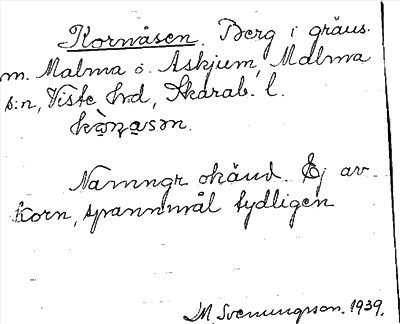 Kornåsen. Berg i gräns.
m. Malma o. Askjum, Malma
s:n, Viste hrd, Skarab. l.
Namngr okänd. Ej av
korn, spannmål tydligen
M. Svenungsson. 1939.